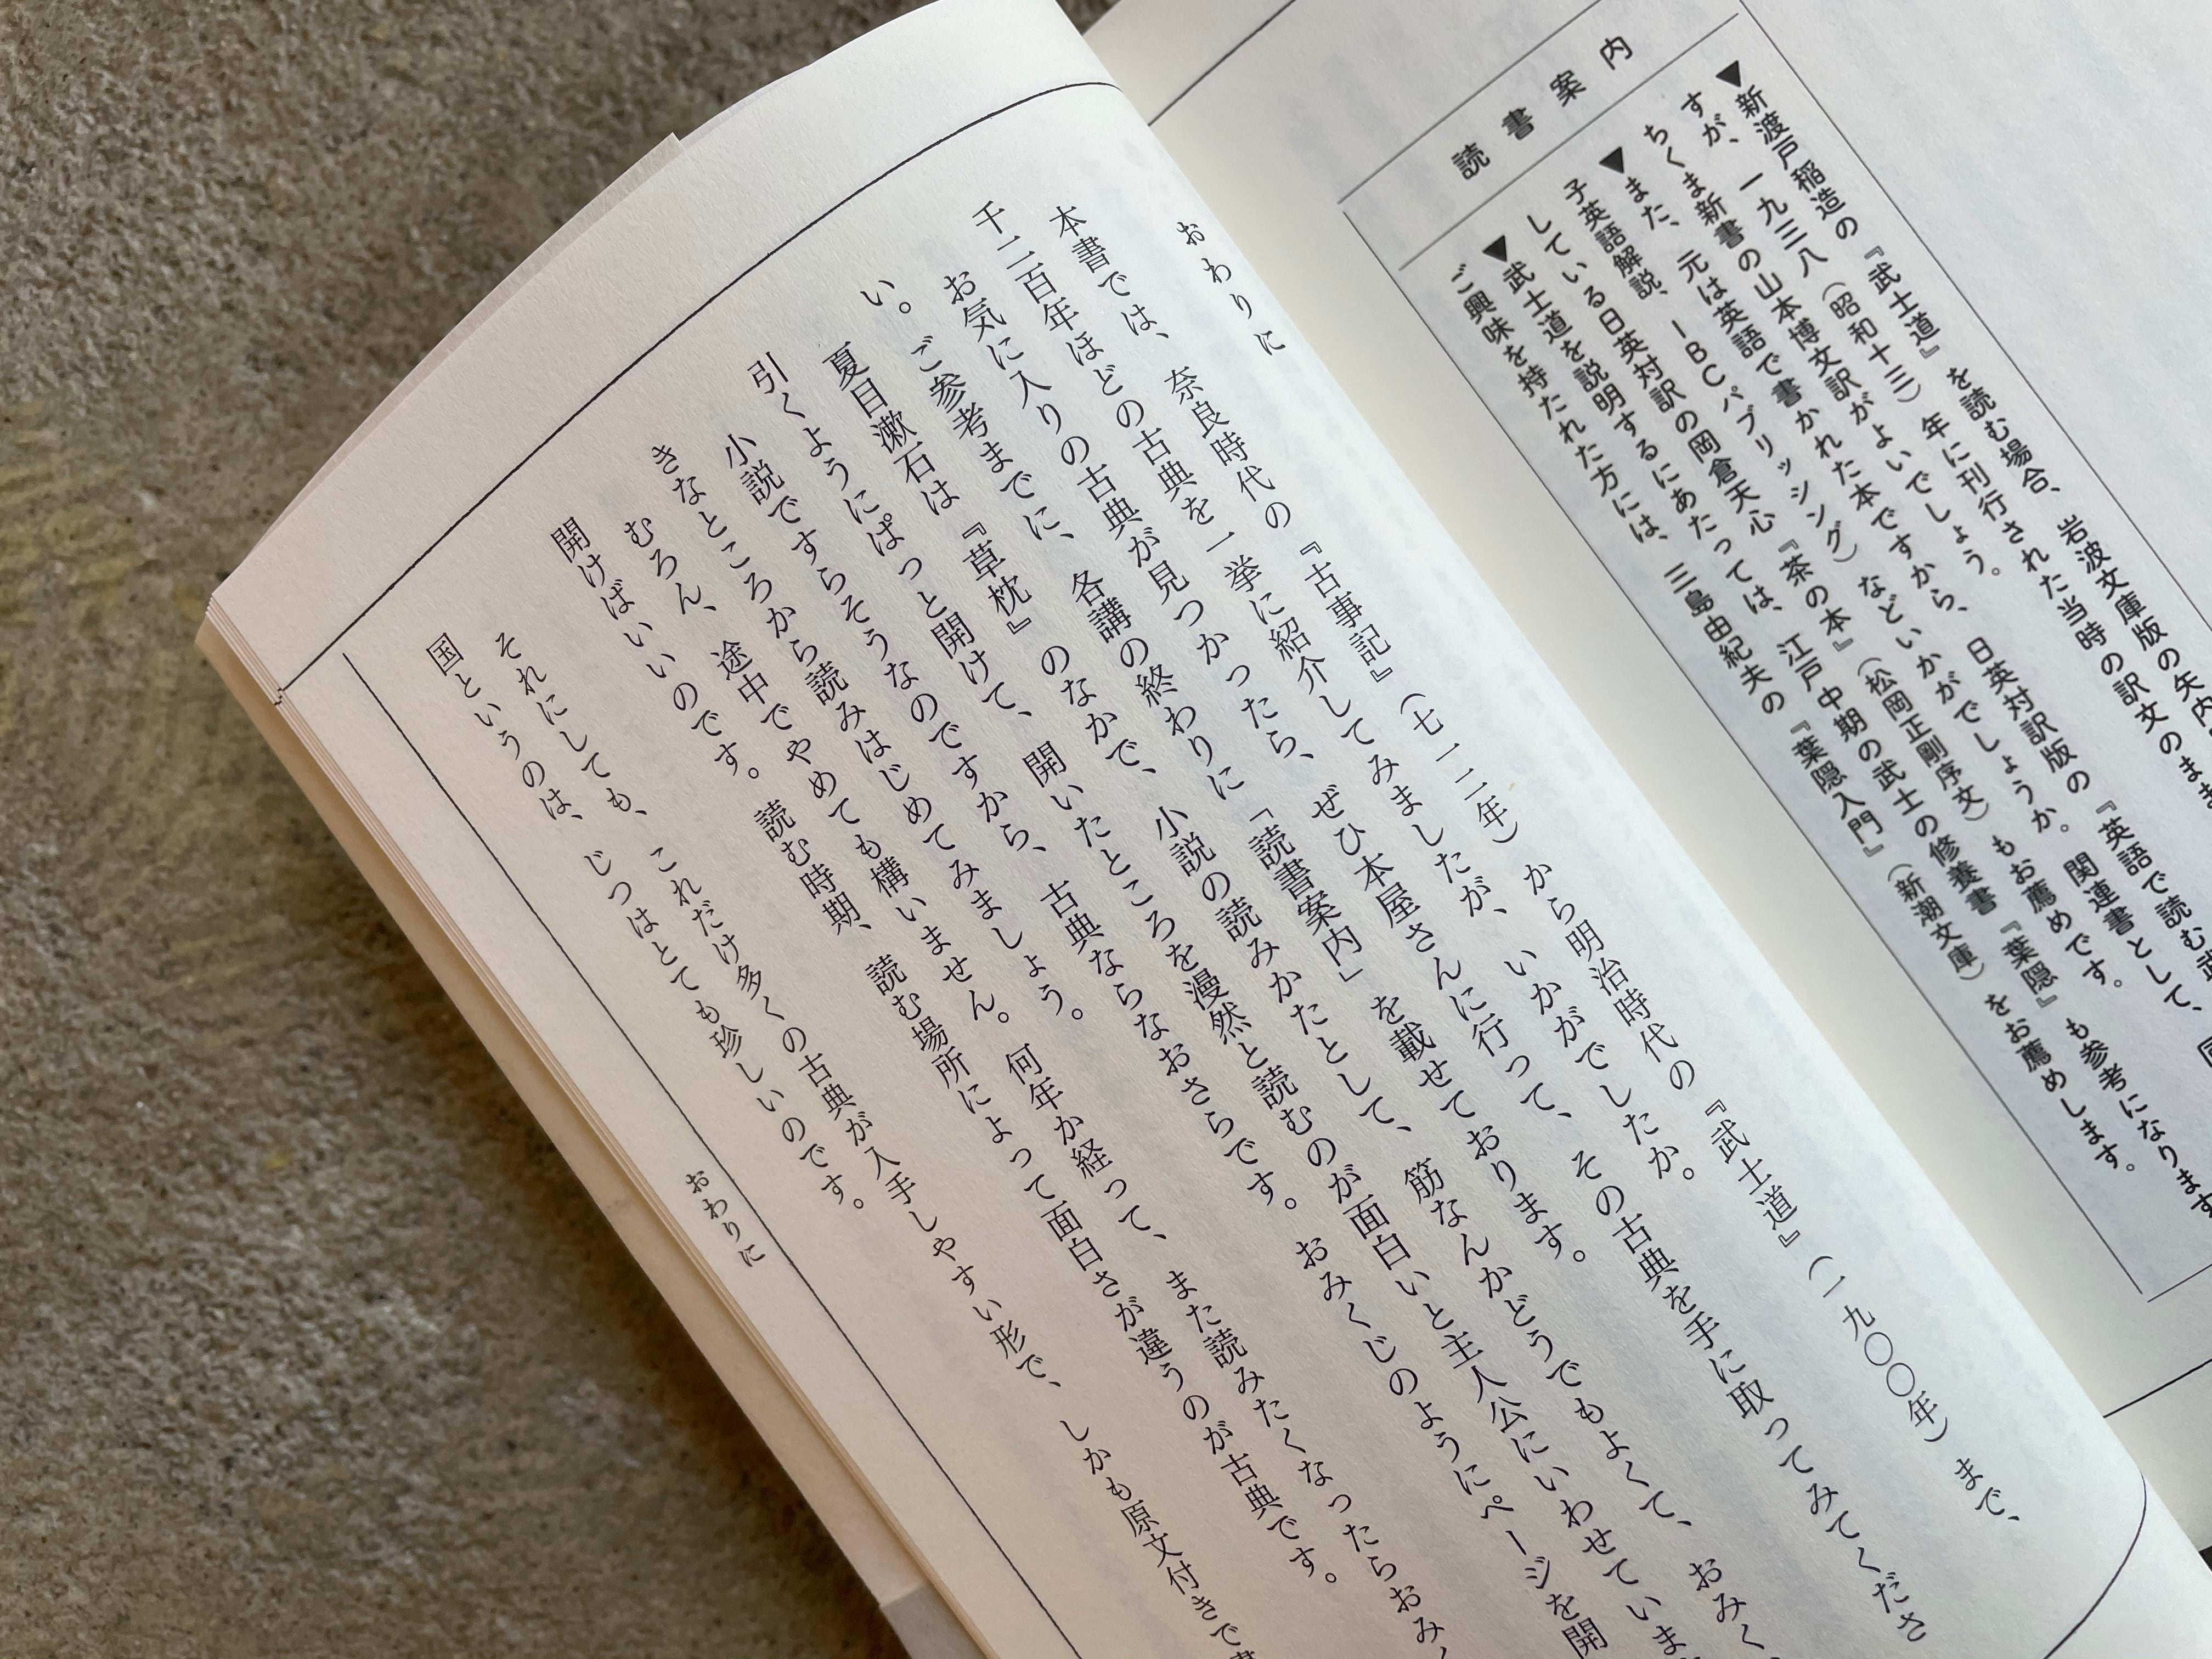 読書案内
▼新渡戸稲造の『武士道』を読む場合、岩波文庫版の矢内
すが、一九三八(昭和十三)年に刊行された当時の訳文のまま
ちくま新書の山本博文訳がよいでしょう。
▼また、元は英語で書かれた本ですから、日英対訳版の『英語で読む武
子英語解説、IBCパブリッシング)などいかがでしょうか。関連書として、同
している日英対訳の岡倉天心『茶の本』(松岡正剛序文)もお薦めです。
▼武士道を説明するにあたっては、江戸中期の武士の修養書『葉隠』も参考になります
ご興味を持たれた方には、三島由紀夫の『葉隠入門』(新潮文庫)をお薦めします。
おわりに
本書では、奈良時代の『古事記』(七一二年)から明治時代の『武士道』(一九〇〇年)まで、
千二百年ほどの古典を一挙に紹介してみましたが、いかがでしたか。
お気に入りの古典が見つかったら、ぜひ本屋さんに行って、その古典を手に取ってみてくださ
い。ご参考までに、各講の終わりに「読書案内」を載せております。
夏目漱石は『草枕』のなかで、小説の読みかたとして、筋なんかどうでもよくて、おみく
引くようにぱっと開けて、開いたところを漫然と読むのが面白いと主人公にいわせていま
小説ですらそうなのですから、古典ならなおさらです。おみくじのようにページを開
きなところから読みはじめてみましょう。
むろん、途中でやめても構いません。何年か経って、また読みたくなったらおみ
開けばいいのです。読む時期、読む場所によって面白さが違うのが古典です。
それにしても、これだけ多くの古典が入手しやすい形で、しかも原文付きで
国というのは、じつはとても珍しいのです。
おわりに